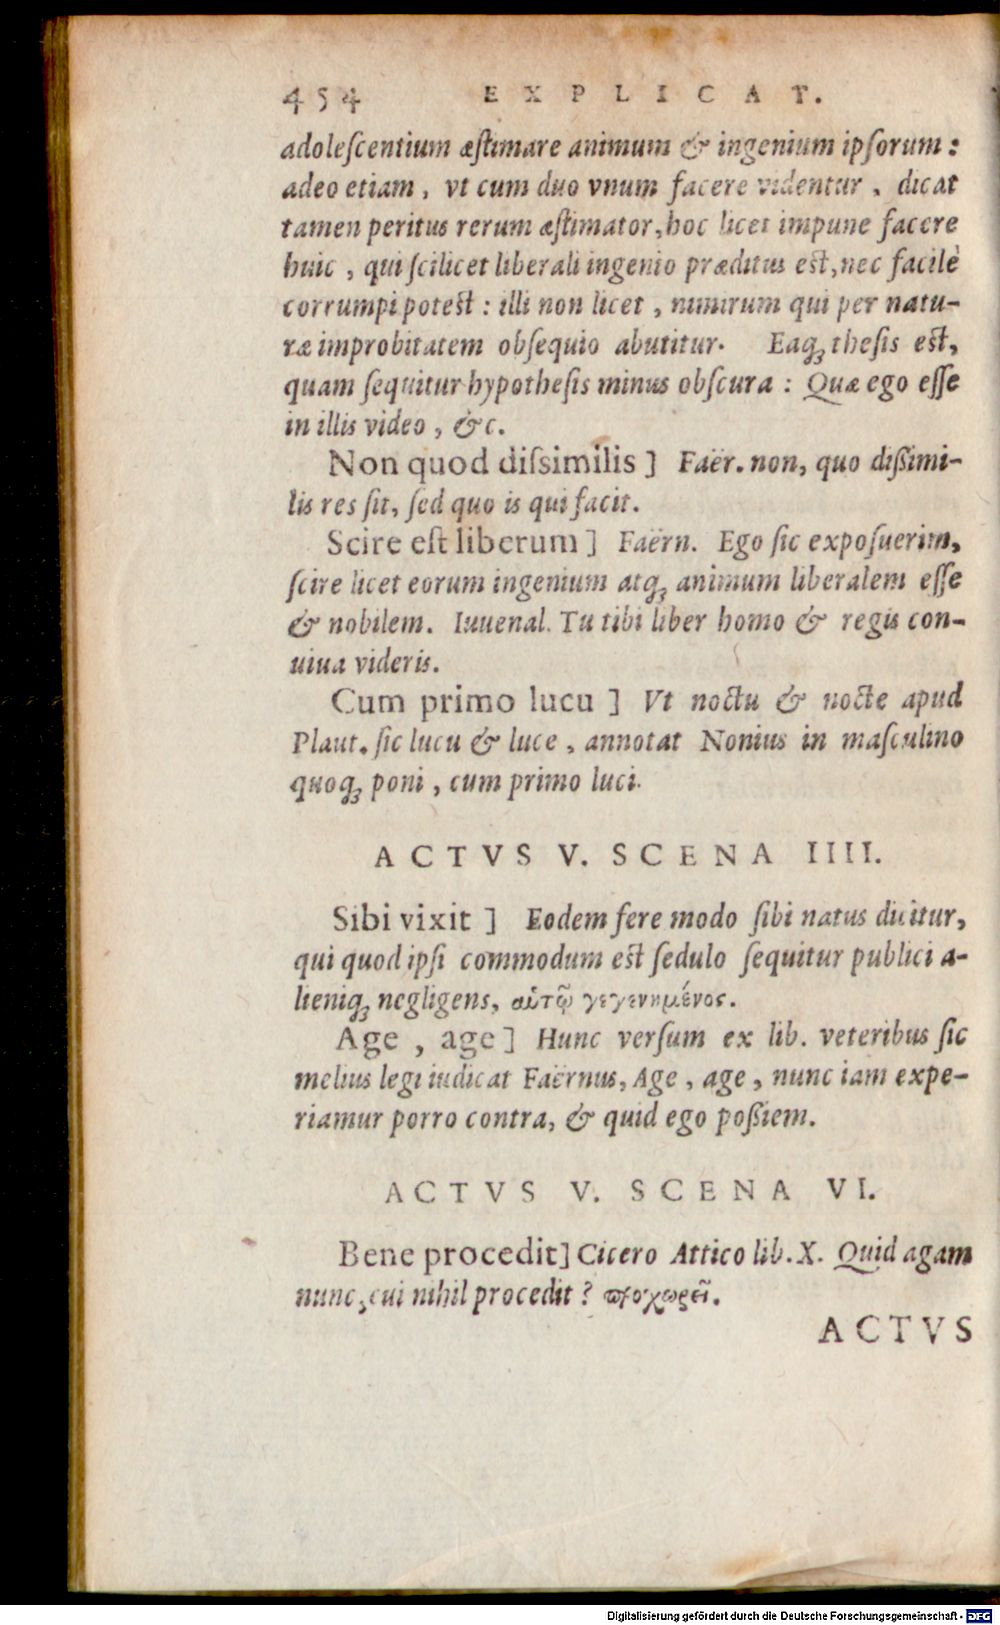 454 EXPLICAT.
adoleſcentium æſtimare animum & ingenium ipſorum:
adeo etiam, vt cum duo vnum facere videntur, dicat
tamen peritus rerum æſtimator, hoc licet impune facere
huic, qui ſcilicet liberali ingenio præditus est, nec facilè
corrumpi potest: illi non licet, nimirum qui per natu-
ræ improbitatem obſequio abutitur. Eaqꝫ theſis est,
quam ſequitur hypotheſis minus obſcura: Quæ ego eſſe
in illis video, &c.
Non quod diſsimilis] Faër. non, quo dißimi-
lis res ſit, ſed quo is qui facit.
Scire eſt liberum] Faërn. Ego ſic expoſuerim,
ſcire licet eorum ingenium atqꝫ animum liberalem eſſe
& nobilem. Iuuenal. Tu tibi liber homo & regis con-
uiua videris.
Cum primo lucu] Vt noctu & nocte apud
Plaut. ſic lucu & luce, annotat Nonius in maſculino
quoqꝫ poni, cum primo luci.
ACTVS V. SCENA IIII.
Sibi vixit] Eodem fere modo ſibi natus dicitur,
qui quod ipſi commodum est ſedulo ſequitur publici a-
lieniqꝫ negligens, αὑτῷ γεγενημένος.
Age, age] Hunc verſum ex lib. veteribus ſic
melius legi iudicat Faërnus, Age, age, nunc iam expe-
riamur porro contra, & quid ego poßiem.
ACTVS V. SCENA VI.
Bene procedit] Cicero Attico lib. X. Quid agam
nunc, cui nihil procedit? προχωρεῖ.
ACTVS
Digitalisierung gefördert durch die Deutsche Forschungsgemeinschaft - DFG